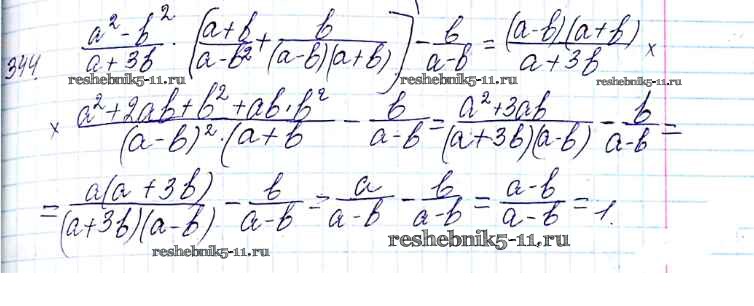 344. \frac{a^2-b^2}{a+3b} \cdot \left(\frac{a+b}{a-b^2} + \frac{b}{(a-b)(a+b)}\right) - \frac{b}{a-b} = \frac{(a-b)(a+b)}{a+3b} ×
× \frac{a^2+2ab+b^2+ab \cdot b^2}{(a-b)^2 \cdot (a+b} - \frac{b}{a-b} = \frac{a^2+3ab}{(a+3b)(a-b)} - \frac{b}{a-b} =
= \frac{a(a+3b)}{(a+3b)(a-b)} - \frac{b}{a-b} = \frac{a}{a-b} - \frac{b}{a-b} = \frac{a-b}{a-b} = 1.
reshebnik5-11.ru
reshebnik5-11.ru
reshebnik5-11.ru
reshebnik5-11.ru
reshebnik5-11.ru